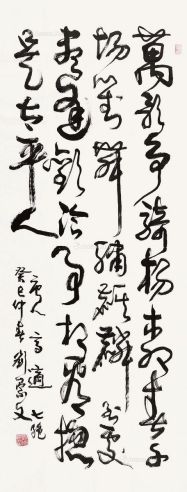 萬歌爭騎楊柳春千
場對舞繡騏驎到處
盡逢歡洽事相看總
是太平人
唐人高適七絕
癸巳仲春劉文